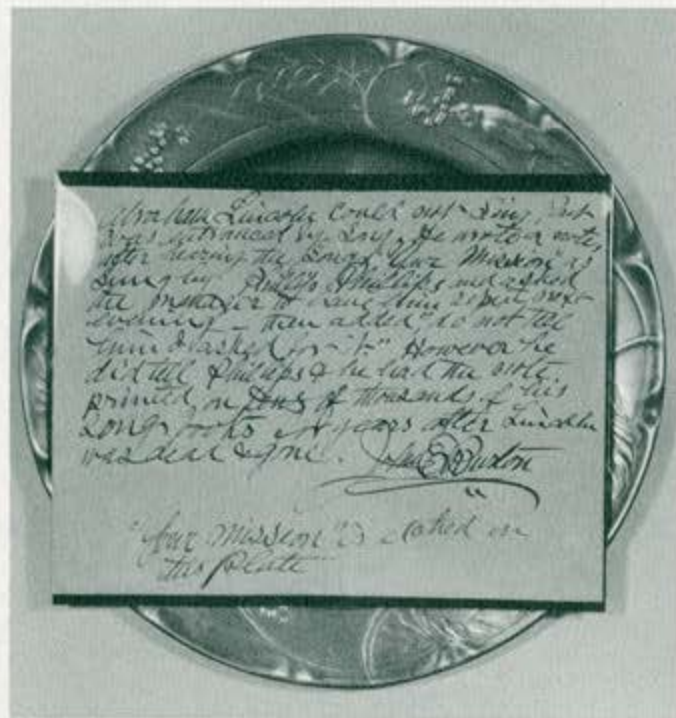 Abraham Lincoln could not sing, but
was entranced by song. He wrote a note,
after hearing the song "Your Mission" as
sung by Philip Phillips and asked
the manager to have him repeat next
evening — then added "do not tell
him I asked for it." However he
did tell Phillips & he had the note
printed on tens of thousands of his
song books for years after Lincoln
was dead & gone. John E Burton
"Your Mission" is etched on
this plate